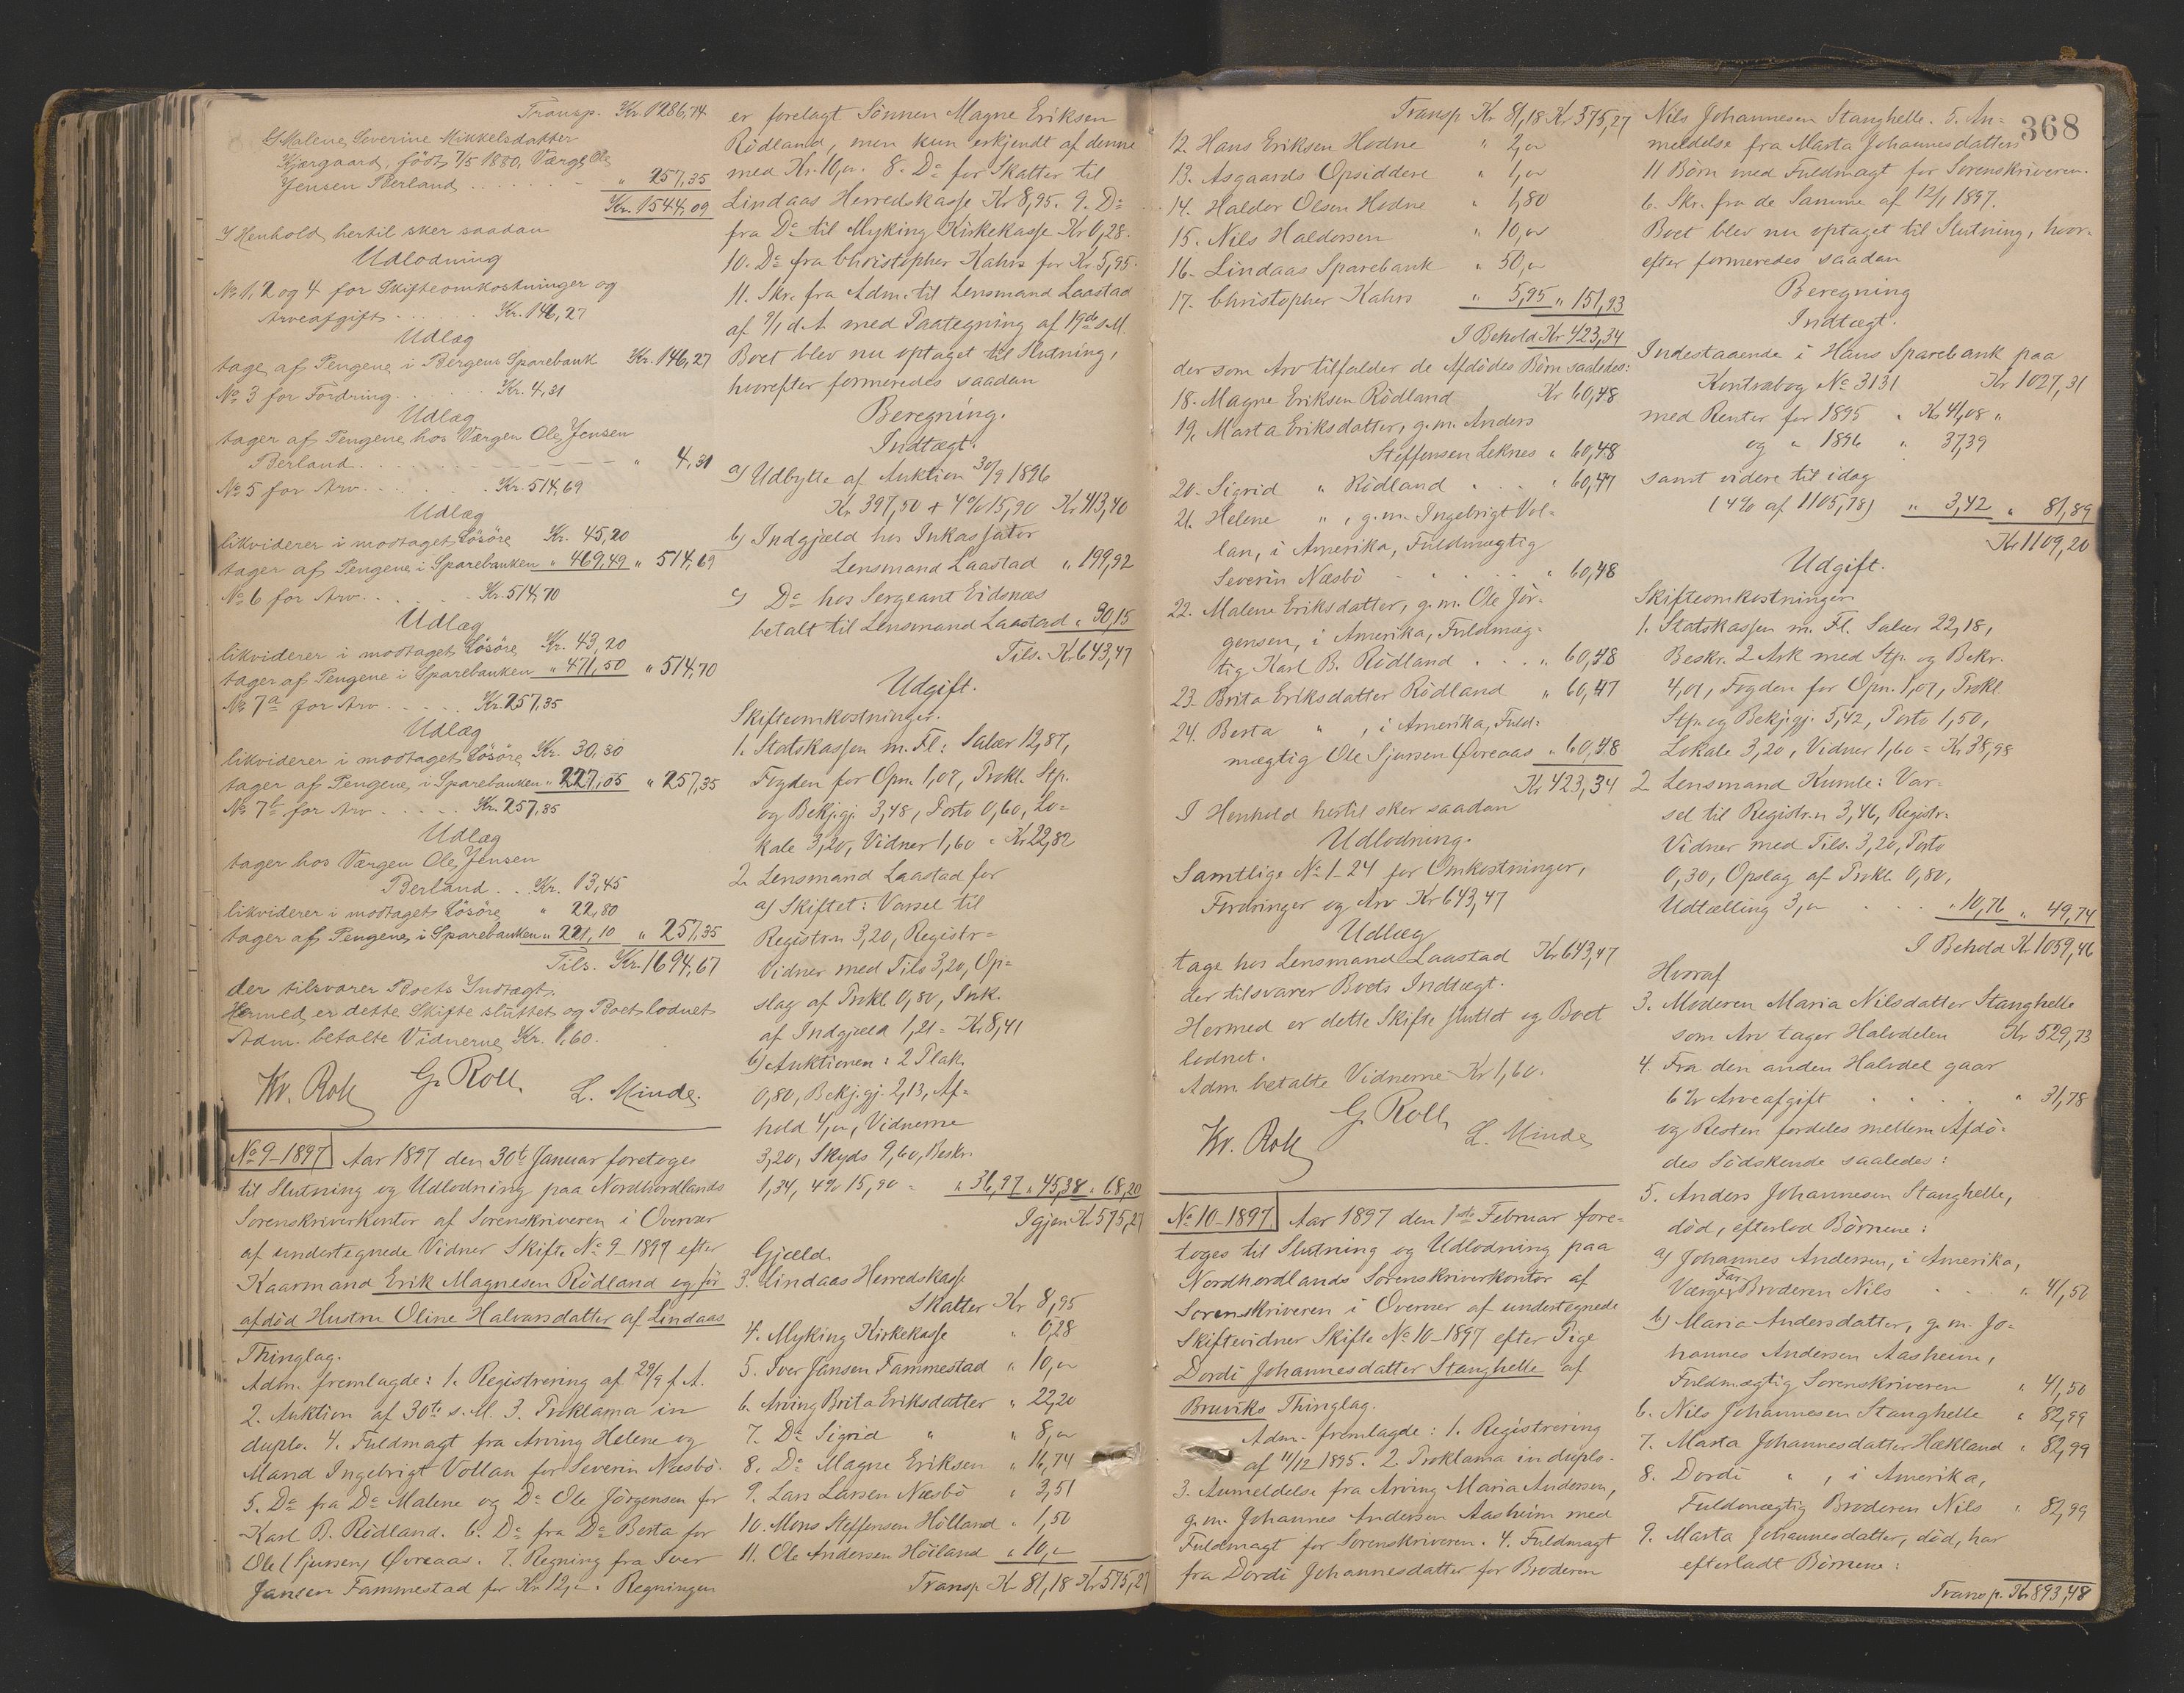 Transp. Kr. 1286,74
b/ Malene Severine Mikkelsdatter
Kjærgaard, født 7/5 1880, Værge Ole
Jensen Berland . . . . . . " 257,35
Kr. 1544,09
I Henhold hertil sker saadan
Udlodning
No 1, 2 og 4 for Skifteomkostninger og
Arveafgift . . . . . Kr. 146,27
Udlæg
tage af Pengene i Bergens Sparebank Kr. 146,27
No 3 for Fordring . . . . Kr. 4,31
Udlæg
tager af Pengene hos Værgen Ole Jensen
Berland . . . . . . . " 4,31
No 5 for Arv . . . . . Kr. 514,69
Udlæg
likviderer i modtaget Løsøre Kr. 45,20
tager af Pengene i Sparebanken " 469,49 " 514,69
No 6 for Arv . . . . Kr. 514,70
Udlæg
likviderer i modtaget Løsøre Kr. 43,20
tager af Pengene i Sparebanken " 471,50 " 514,70
No 7a for Arv . . . . Kr. 257,35
Udlæg
likviderer i modtaget Løsøre Kr. 30,30
tager af Pengene i Sparebanken " 227,05 " 257,35
No 7b for Arv . . . . Kr. 257,35
Udlæg
tager hos Værgen Ole Jensen
Berland . . Kr. 13,45
likviderer i modtaget Løsøre " 22,80
tager af Pengene i Sparebanken " 221,10 " 257,35
Tils. Kr. 1694,67
der tilsvarer Boets Indtægt.
Hermed er dette Skifte sluttet og Boet lodnet
Adm. betalte Vidnerne Kr. 1,60.
Kv. Roll G. Roll. L. Minde.
No 9-1897 Aar 1897 den 30te Januar foretoges
til Slutning og Udlodning paa Nordhordlands
Sorenskriverkontor af Sorenskriveren i Overvær
af undertegnede Vidner Skifte No 9-1897 efter
Kaarmand Erik Magnesen Rödland og før
afdöd Hustru Oline Halvarsdatter af Lindaas
Thinglag.
Adm. fremlagde: 1. Registrering af 29/9 f. A.
2. Auktion af 30te s. M. 3. Proklama in
duplo. 4. Fuldmagt fra Arving Helene og
Mand Ingebrigt Vollan for Severin Næsbö.
5. Do fra Do Malene og Do Ole Jörgensen for
Karl B. Rödland. 6. Do fra Do Berta for
Ole Sjursen Øvreaas. 7. Regning fra Iver
Jansen Fammestad for Kr 12,00. Regningen
er forelagt Sönnen Magne Eriksen
Rödland, men kun erkjendt af denne
med Kr. 10,00. 8. Do for Skatter til
Lindaas Herredskasse Kr 8,95. 9. Do
fra Do til Myking Kirkekasse Kr 0,28.
10. Do fra Christopher Kahrs for Kr 5,95.
11. Skr. fra Adm. til Lensmand Laastad
af 9/1 d. A. med Paategning af 19de s. M.
Boet blev nu optaget til Slutning,
hvorefter formeredes saadan
Beregning.
Indtægt.
a) Udbytte af Auktion 30/9 1896
Kr 397,50 + 4% 15,90 Kr 413,40
b) Indgjæld hos Inkassator
Lensmand Laastad " 199,92
c) Do hos Sergeant Eidsnæs
betalt til Lensmand Laastad " 30,15
Tils. Kr 643,47
Udgift.
Skifteomkostninger.
1. Statskassen m. Fl: Salær 12,87,
Fogden for Opn. 1,07, Prokl. Stp.
og Bekj.gj. 3,48, Porto 0,60, Lo-
kale 3,20, Vidner 1,60 = Kr 22,82
2. Lensmand Laastad for
a) Skiftet: Varsel til
Registr.n 3,20, Registr-
Vidner med Tils 3,20, Op-
slag af Prokl. 0,80, Ink.
af Indgjæld 1,21 = Kr 8,41
b) Auktionen: 2 Plak.
0,80, Bekj.gj. 2,13, Af-
hold 4,00, Vidnerne
3,20, Skyds 9,60, Beskr.
1,34, 4% 15,90 = " 36,97 " 45,38 " 68,20
Igjen Kr 575,27
Gjæld.
3. Lindaas Herredskasse
Skatter Kr 8,95
4. Myking Kirkekasse " 0,28
5. Iver Jansen Fammestad " 10,00
6. Arving Brita Eriksdatter " 22,20
7. Do Sigrid " " 8,00
8. Do Magne Eriksen " 16,74
9. Lars Larsen Næsbö " 3,51
10. Mons Steffensen Hölland " 1,50
11. Ole Andersen Höiland " 10,00
Transp Kr 81,18 Kr 575,27
Transp Kr 81,18 Kr 575,27
12. Hans Eriksen Hodne " 2,00
13. Asgaards Opsiddere " 1,00
14. Haldor Olsen Hodne " 1,80
15. Nils Haldorsen " 10,00
16. Lindaas Sparebank " 50,00
17. Christopher Kahrs " 5,95 " 151,93
I Behold Kr 423,34
der som Arv tilfalder de Afdödes Börn saaledes:
18. Magne Eriksen Rödland Kr 60,48
19. Marta Eriksdatter, g. m. Anders
Steffensen Leknes " 60,48
20. Sigrid " Rödland . . . " 60,47
21. Helene " , g. m. Ingebrigt Vol-
lan, i Amerika, Fuldmægtig
Severin Næsbö . . . . " 60,48
22. Malene Eriksdatter, g. m. Ole Jör-
gensen, i Amerika, Fuldmæg-
tig Karl B. Rödland . . . " 60,48
23. Brita Eriksdatter Rödland " 60,47
24. Berta " , i Amerika, Fuld-
mægtig Ole Sjursen Øvreaas " 60,48
Kr 423,34
I Henhold hertil sker saadan
Udlodning.
Samtlige No 1-24 for Omkostninger,
Fordringer og Arv Kr 643,47
Udlæg
tage hos Lensmand Laastad Kr 643,47
der tilsvarer Boets Indtægt.
Hermed er dette Skifte sluttet og Boet
lodnet.
Adm. betalte Vidnerne Kr 1,60.
Kv. Roll G. Roll L. Minde
No 10-1897. Aar 1897 den 1ste Februar fore-
toges til Slutning og Udlodning paa
Nordhordlands Sorenskriverkontor af
Sorenskriveren i Overvær af undertegnede
Skiftevidner Skifte No 10-1897 efter Pige
Dordi Johannesdatter Stanghelle af
Bruviks Thinglag.
Adm. fremlagde: 1. Registrering
af 11/12 1895. 2. Proklama in duplo.
3. Anmeldelse fra Arving Maria Andersen,
g. m. Johannes Andersen Aasheim med
Fuldmagt for Sorenskriveren. 4. Fuldmagt
fra Dordi Johannesdatter for Broderen
368
Nils Johannesen Stanghelle. 5. An-
meldelse fra Marta Johannesdatters
11 Börn med Fuldmagt for Sorenskriveren.
6. Skr. fra de Samme af 12/1 1897.
Boet blev nu optaget til Slutning, hvor-
efter formeredes saadan
Beregning
Indtægt.
Indestaaende i Haus Sparebank paa
Kontrabog No 3131 Kr 1027,31
med Renter for 1895 " Kr 41,08 "
og " 1896 " 37,39
samt videre til idag
(4% af 1105,78) " 3,42 " 81,89
Kr 1109,20
Udgift.
Skifteomkostninger
1. Statskassen m. Fl. Salær 22,18,
Beskr. 2 Ark med Stp. og Bekr.
4,01, Fogden for Opn. 1,07, Prokl
Stp. og Bekj.gj. 5,42, Porto 1,50,
Lokale 3,20, Vidner 1,60 = Kr 38,98
2. Lensmand Kumle: Var-
sel til Registr.n 3,46, Registr.
Vidner med Tils. 3,20, Porto
0,30, Opslag af Prokl. 0,80,
Udtælling 3,00 . . . " 10,76 " 49,74
I Behold Kr 1059,46
Hvoraf
3. Moderen Maria Nilsdatter Stanghelle
som Arv tager Halvdelen Kr 529,73
4. Fra den anden Halvdel gaar
6% Arveafgift . . . . " 31,78
og Resten fordeles mellem Afdö-
des Södskende saaledes:
5. Anders Johannesen Stanghelle,
död, efterlod Börnene:
a) Johannes Andersen, i Amerika,
Værge Far-Broderen Nils . . . " 41,50
b) Maria Andersdatter, g. m. Jo-
hannes Andersen Aasheim,
Fuldmægtig Sorenskriveren " 41,50
6. Nils Johannesen Stanghelle " 82,99
7. Marta Johannesdatter Hækland " 82,99
8. Dordi " , i Amerika,
Fuldmægtig Broderen Nils " 82,99
9. Marta Johannesdatter, död, har
efterladt Börnene:
Transp. Kr 893,48